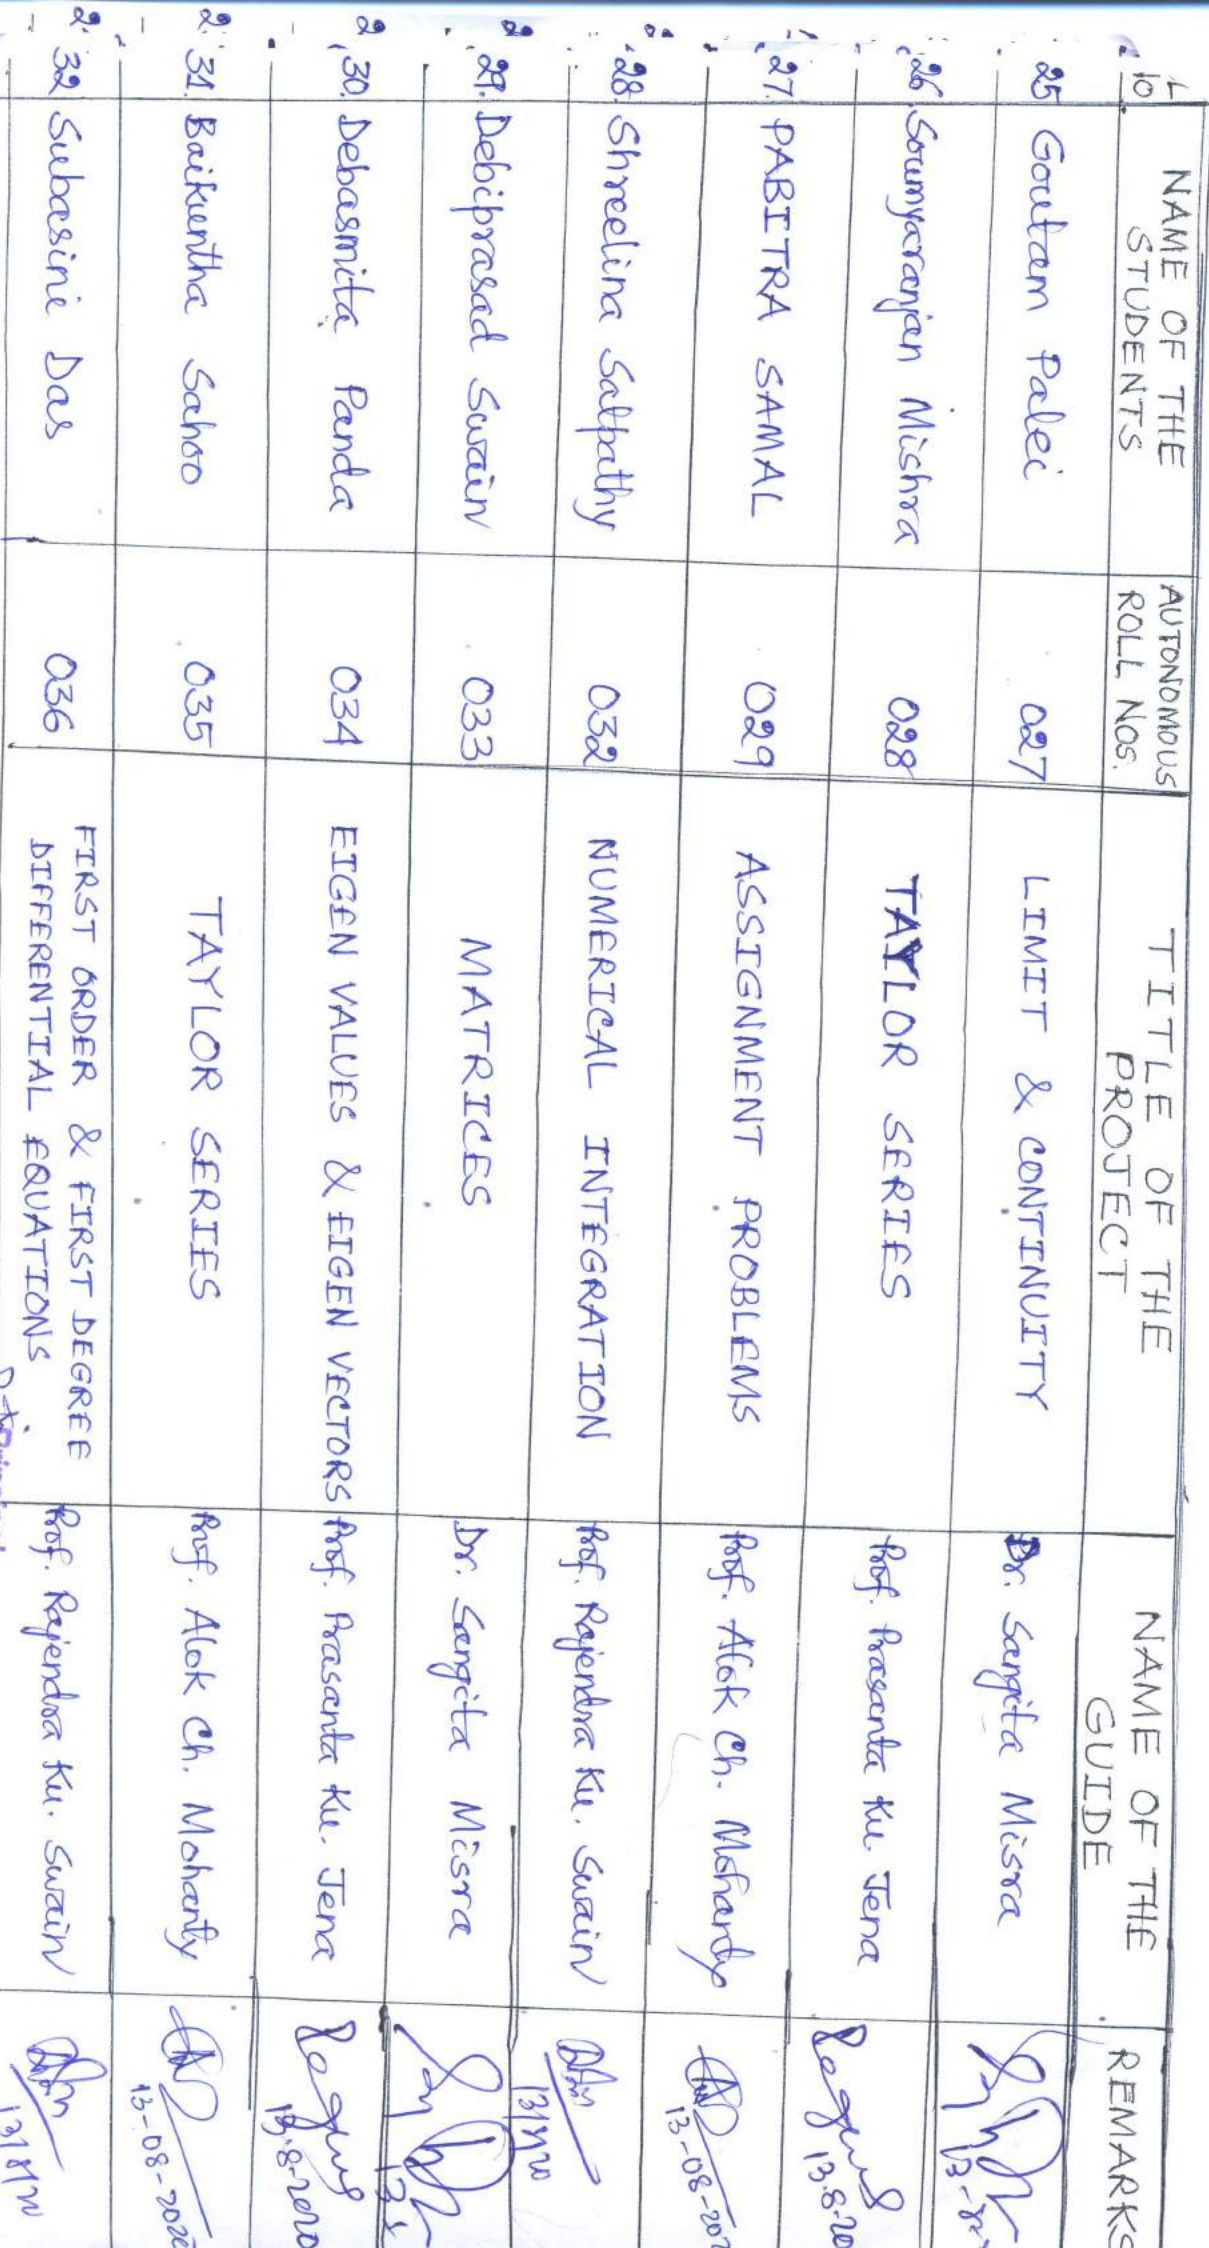 NAME OF THE STUDENTS AUTONOMOUS ROLL NOS. TITLE OF THE PROJECT NAME OF THE GUIDE REMARKS
25 Goutam Palei 027 LIMIT & CONTINUITY Dr. Sangita Misra
26. Soumyaranjan Mishra 028 TAYLOR SERIES Prof. Prasanta Ku. Jena 13.8.20
27. PABITRA SAMAL 029 ASSIGNMENT PROBLEMS Prof. Alok Ch. Mohanty 13-08-202
28. Shreelina Satpathy 032 NUMERICAL INTEGRATION Prof. Rajendra Ku. Swain 13/8/20
29. Debiprasad Swain 033 MATRICES Dr. Sangita Misra
30. Debasmita Panda 034 EIGEN VALUES & EIGEN VECTORS Prof. Prasanta Ku. Jena 13.8.2020
31. Baikuntha Sahoo 035 TAYLOR SERIES Prof. Alok Ch. Mohanty 13-08-2020
32 Subasini Das 036 FIRST ORDER & FIRST DEGREE
DIFFERENTIAL EQUATIONS. Prof. Rajendra Ku. Swain 13/8/20